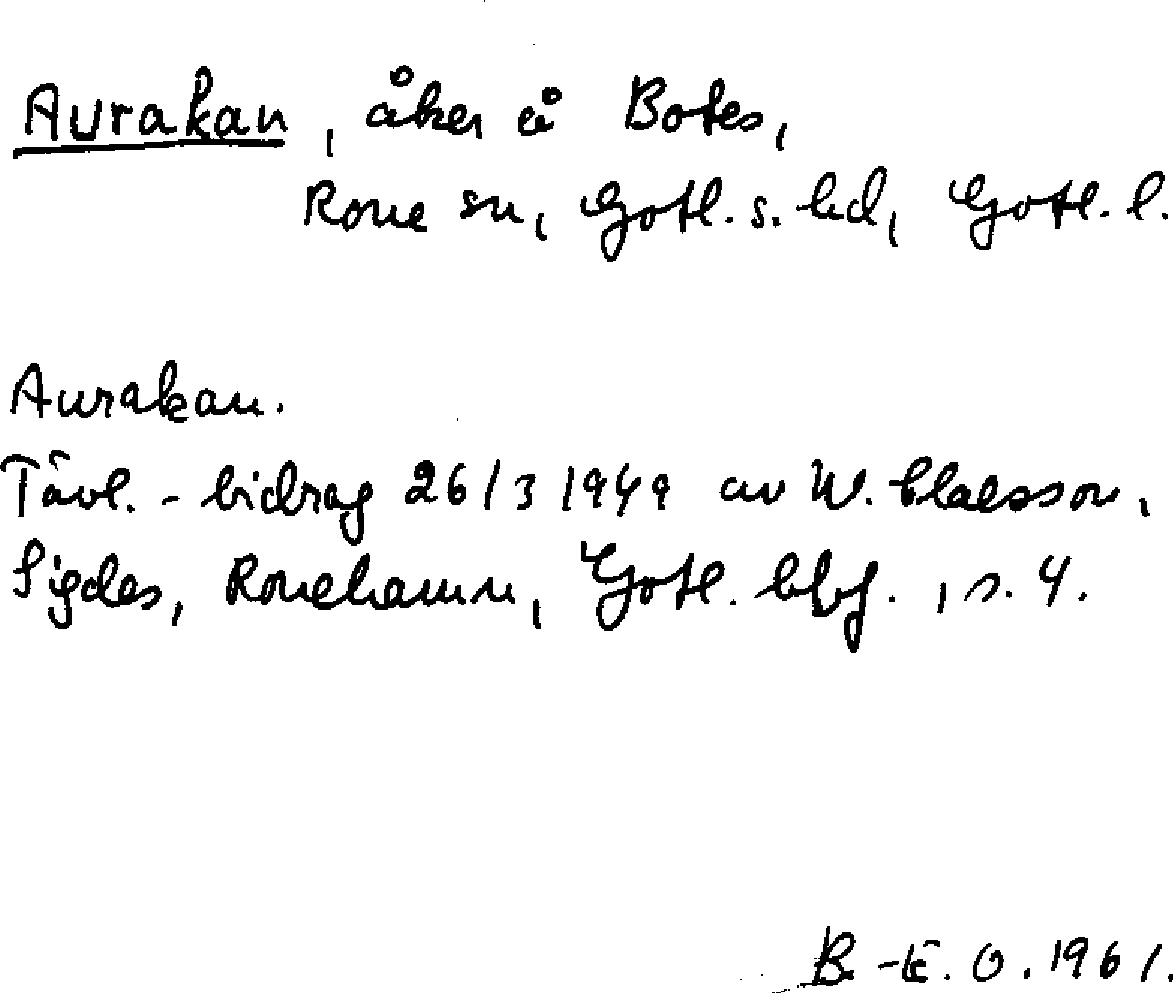 Aurakan, åker å Botes,
Rone sn, Gotl. s. hd, Gotl. l.
Aurakan.
Tävl. - bidrag 26/3 1949 av W. Claesson,
Sigdes, Ronehamn, Gotl. hbf., s. 4.
B-E. O. 1961.